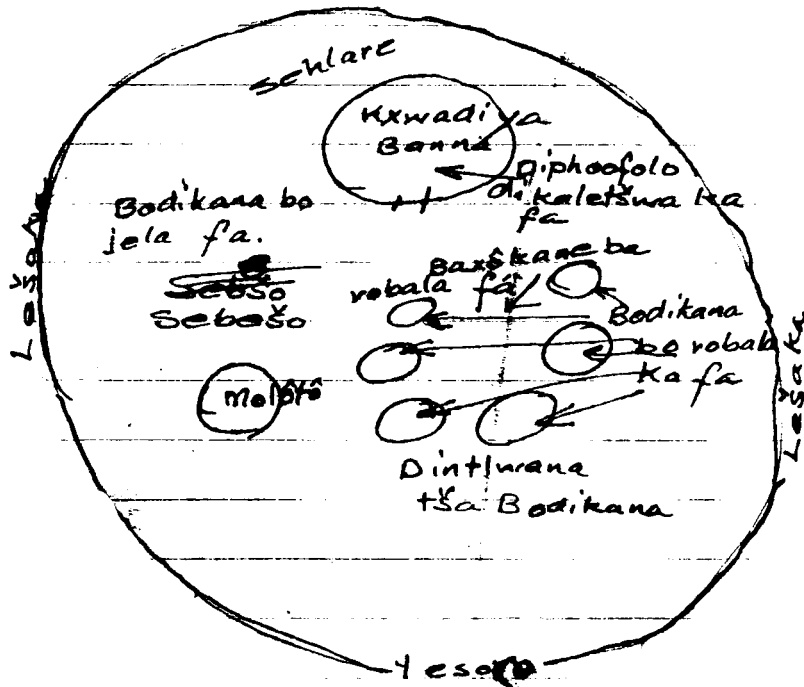 Sehlare
Kxwadi ya
Banna
Diphoofolo
di kaletšwa ka
fa
Bodikana bo
jela fa.
Sebešo
Sebešo
Baxškane ba
robala fa
Bodikana
bo robala
ka fa
molôtô
Dintlwana
tša Bodikana
Lešaka
Lešaka